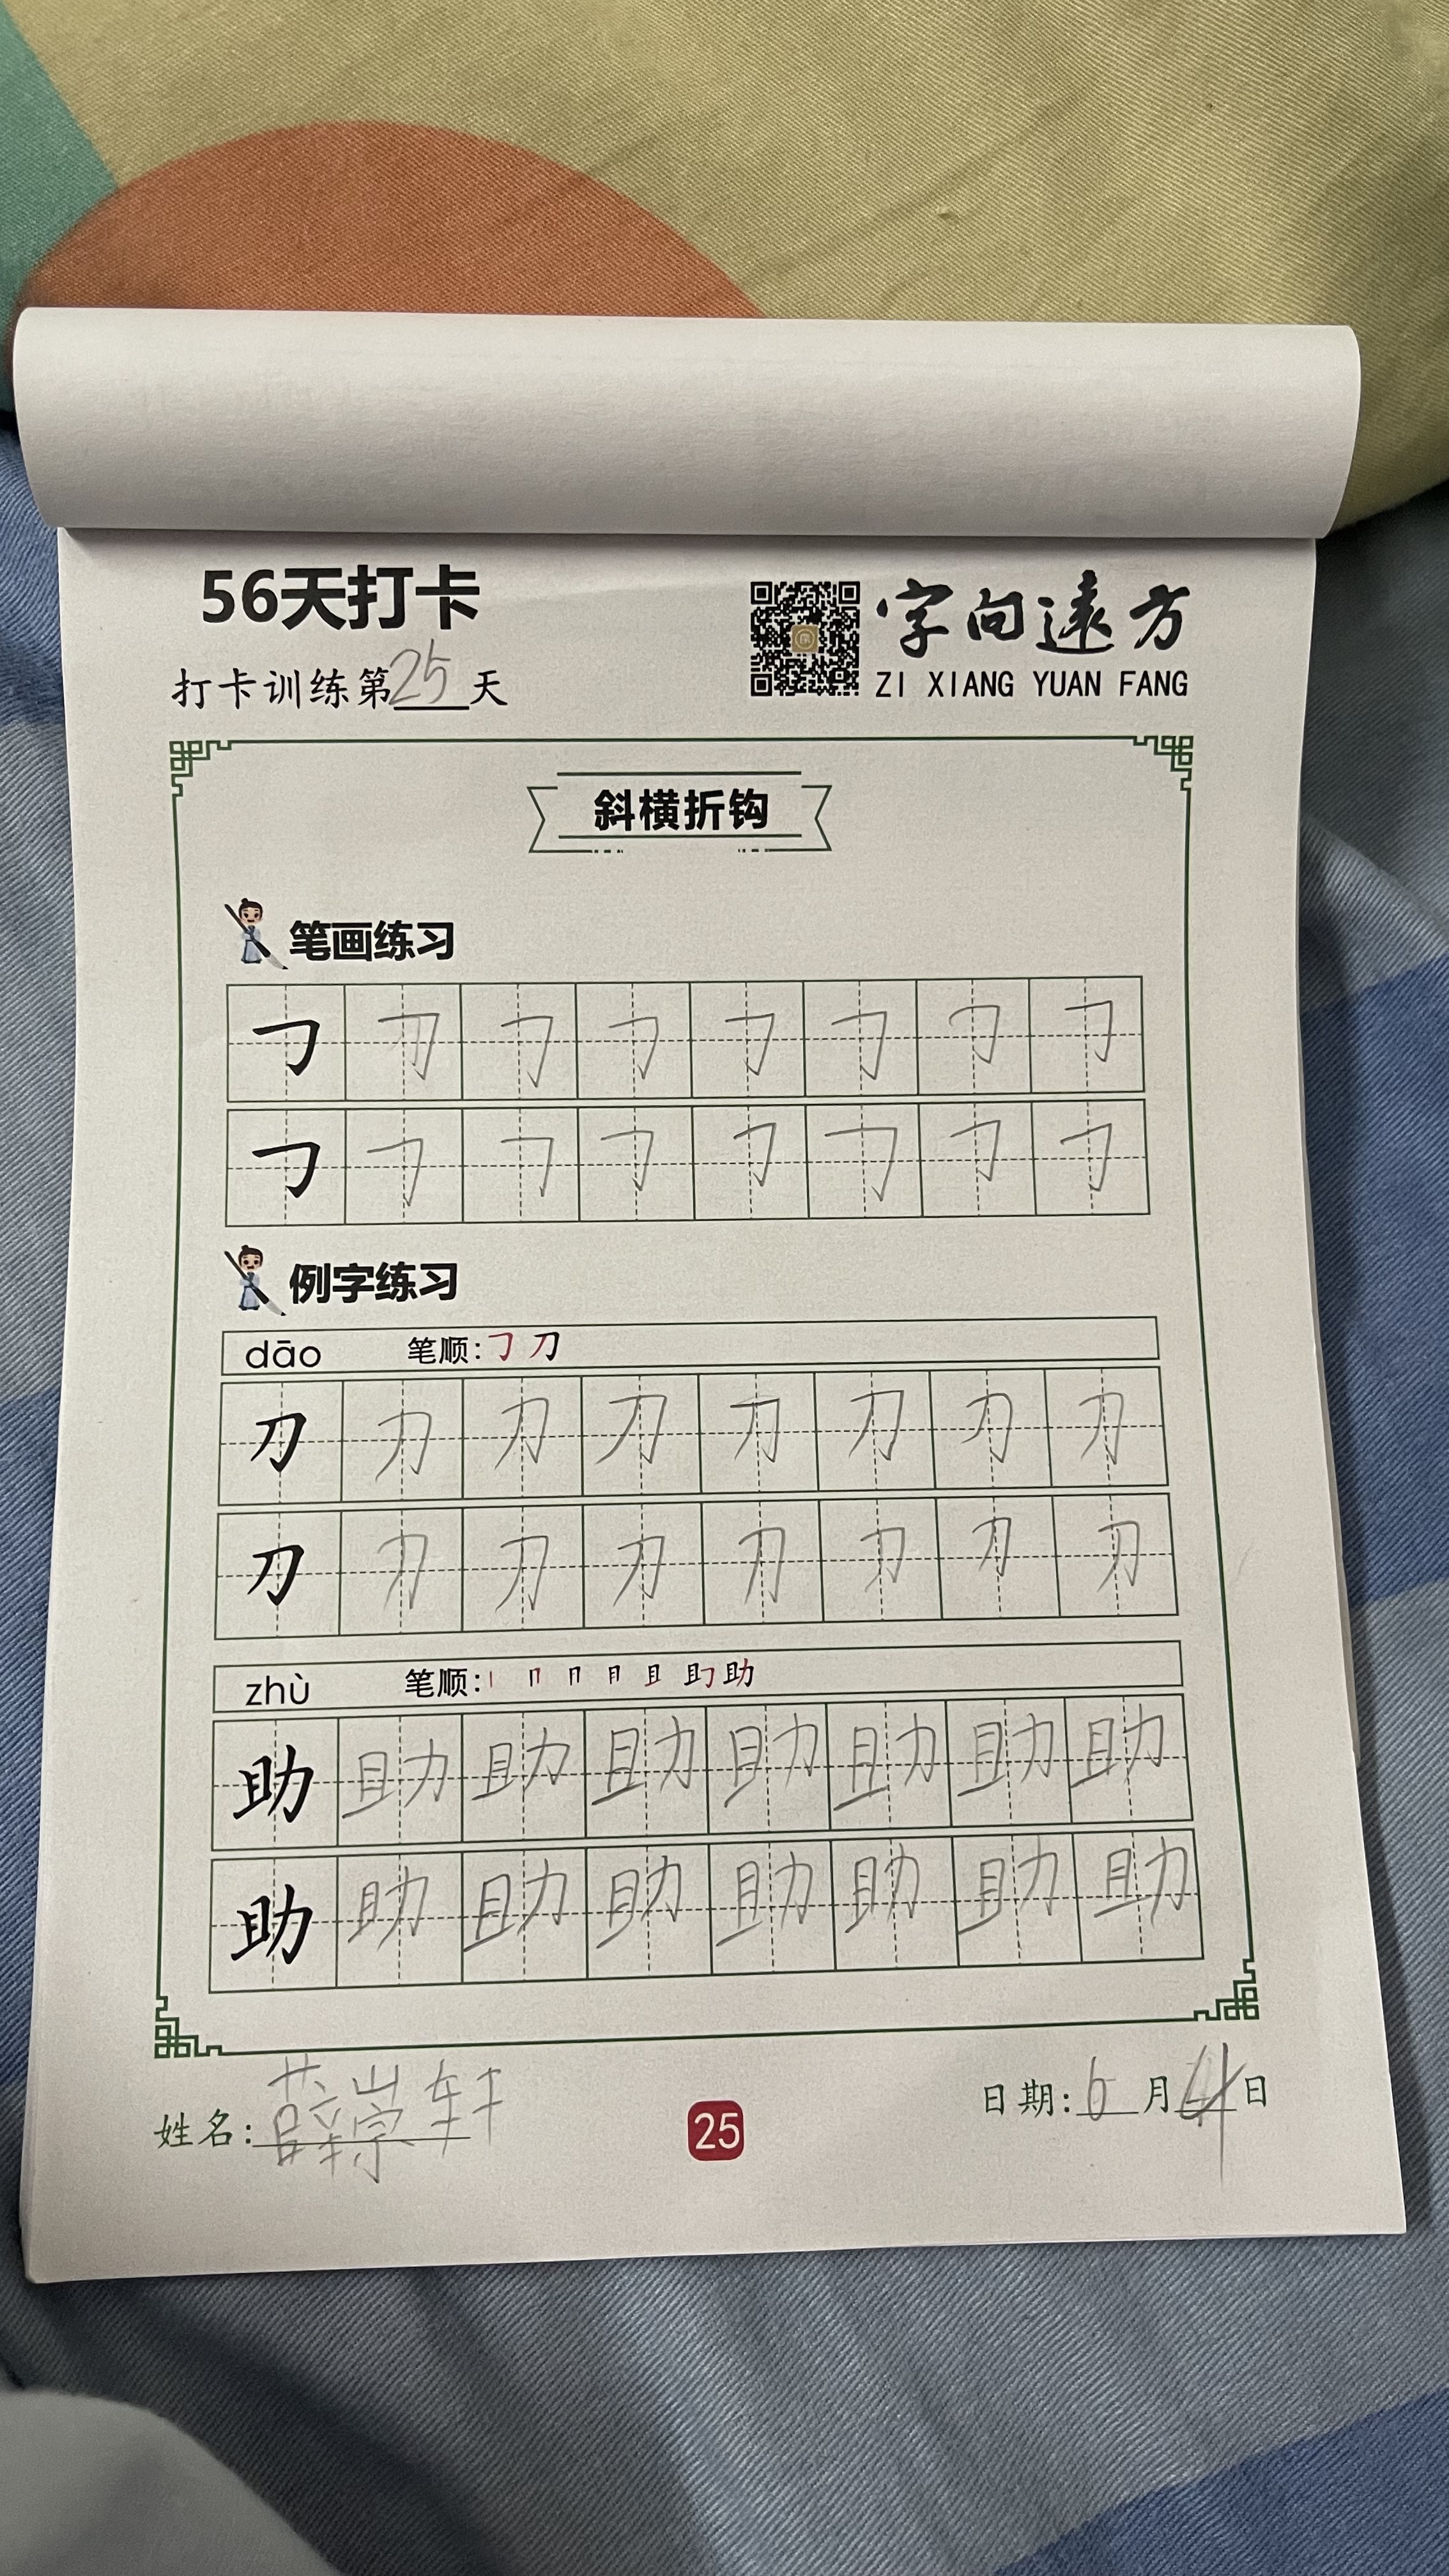 56天打卡
字向遠方
打卡训练第25天
ZI XIANG YUAN FANG
斜横折钩
笔画练习
㇆ ㇆ ㇆ ㇆ ㇆ ㇆ ㇆ ㇆
㇆ ㇆ ㇆ ㇆ ㇆ ㇆ ㇆ ㇆
例字练习
dāo 笔顺:㇆ 刀
刀 刀 刀 刀 刀 刀 刀 刀
刀 刀 刀 刀 刀 刀 刀 刀
zhù 笔顺: 助
助 助 助 助 助 助 助 助
助 助 助 助 助 助 助 助
姓名:薛崇轩
25
日期:6月4日